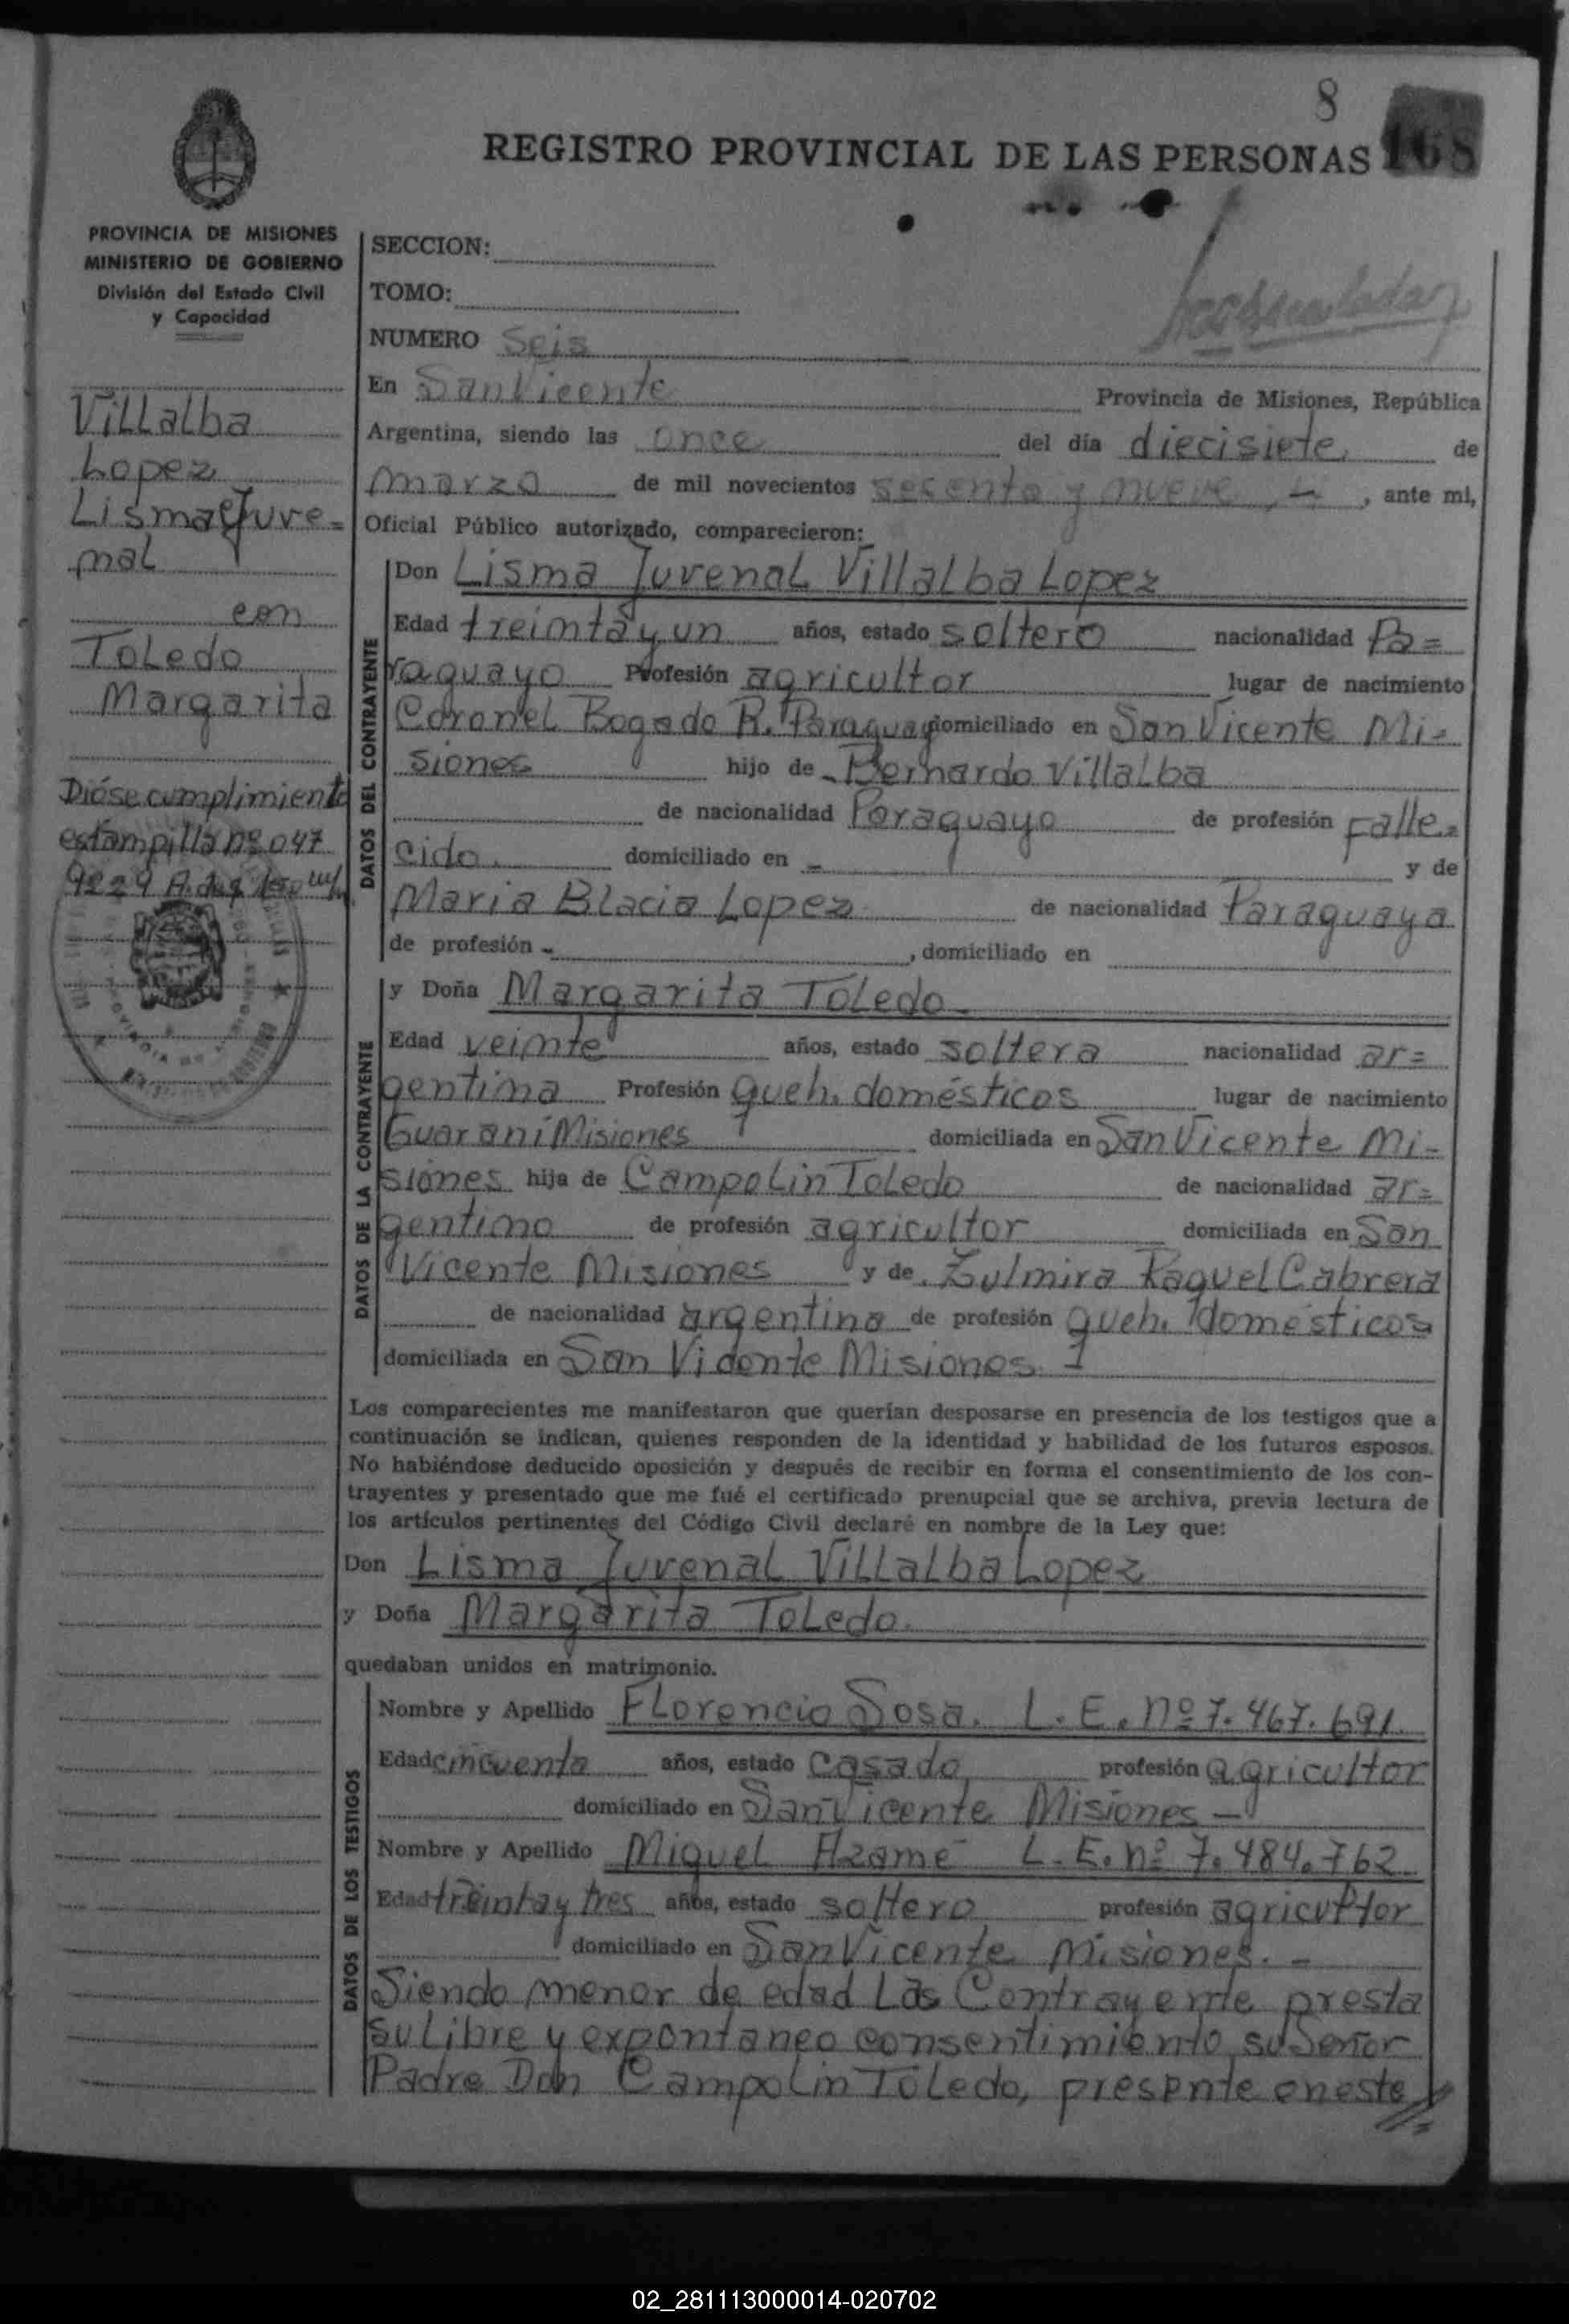 8
REGISTRO PROVINCIAL DE LAS PERSONAS 168
PROVINCIA DE MISIONES
MINISTERIO DE GOBIERNO
División del Estado Civil
y Capacidad
SECCION:
TOMO:
NUMERO Seis
En San Vicente Provincia de Misiones, República
Argentina, siendo las once del día diecisiete de
marzo de mil novecientos secenta y nueve, - , ante mi,
Oficial Público autorizado, comparecieron:
Villalba
Lopez
Lisma Juve=
nal
con
Toledo
Margarita
Dióse cumplimiento
estampilla nº 047
DATOS DEL CONTRAYENTE
Don Lisma Juvenal Villalba Lopez
Edad treinta y un años, estado soltero nacionalidad Pa=
raguayo Profesión agricultor lugar de nacimiento
Coronel Bogado R. Paraguay domiciliado en San Vicente Mi-
siones hijo de Bernardo Villalba
de nacionalidad Paraguayo de profesión falle=
cido. domiciliado en - y de
Maria Blacia Lopez de nacionalidad Paraguaya
de profesión - , domiciliado en
DATOS DE LA CONTRAYENTE
y Doña Margarita Toledo
Edad veinte años, estado soltera nacionalidad ar=
gentina Profesión queh. domésticos lugar de nacimiento
Guaraní Misiones domiciliada en San Vicente Mi-
siones hija de Campolin Toledo de nacionalidad ar=
gentino de profesión agricultor domiciliada en San
Vicente Misiones y de Zulmira Raquel Cabrera
de nacionalidad argentina de profesión queh. domésticos
domiciliada en San Vicente Misiones
Los comparecientes me manifestaron que querían desposarse en presencia de los testigos que a
continuación se indican, quienes responden de la identidad y habilidad de los futuros esposos.
No habiéndose deducido oposición y después de recibir en forma el consentimiento de los con-
trayentes y presentado que me fué el certificado prenupcial que se archiva, previa lectura de
los artículos pertinentes del Código Civil declaré en nombre de la Ley que:
Don Lisma Juvenal Villalba Lopez
y Doña Margarita Toledo.
quedaban unidos en matrimonio.
DATOS DE LOS TESTIGOS
Nombre y Apellido Florencio Sosa. L.E. nº 7.467.691.
Edad cincuenta años, estado casado profesión agricultor
domiciliado en San Vicente Misiones -
Nombre y Apellido Miguel Azame L.E. nº 7.484.762
Edad treinta y tres años, estado soltero profesión agricultor
domiciliado en San Vicente Misiones. -
Siendo menor de edad Las Contrayente presta
su libre y expontaneo consentimiento su Señor
Padre Don Campolin Toledo, presente en este //=
02_281113000014-020702